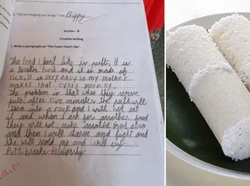 Happy
Section - B
Creative writing
1. Write a paragraph on 'The Food I Don't Like'.
The food I don't like is putt. It is
a kerala food and it is made of
is very easy so my mother
makes that every morning.
The problem is that when they serve
putt after five minutes the putt will
turn into a rock and I will not eat
it and when I ask for another food
they will not make another food also
and then I will starve and fight and
she will scold me and will cry.
Putt breaks Relationship